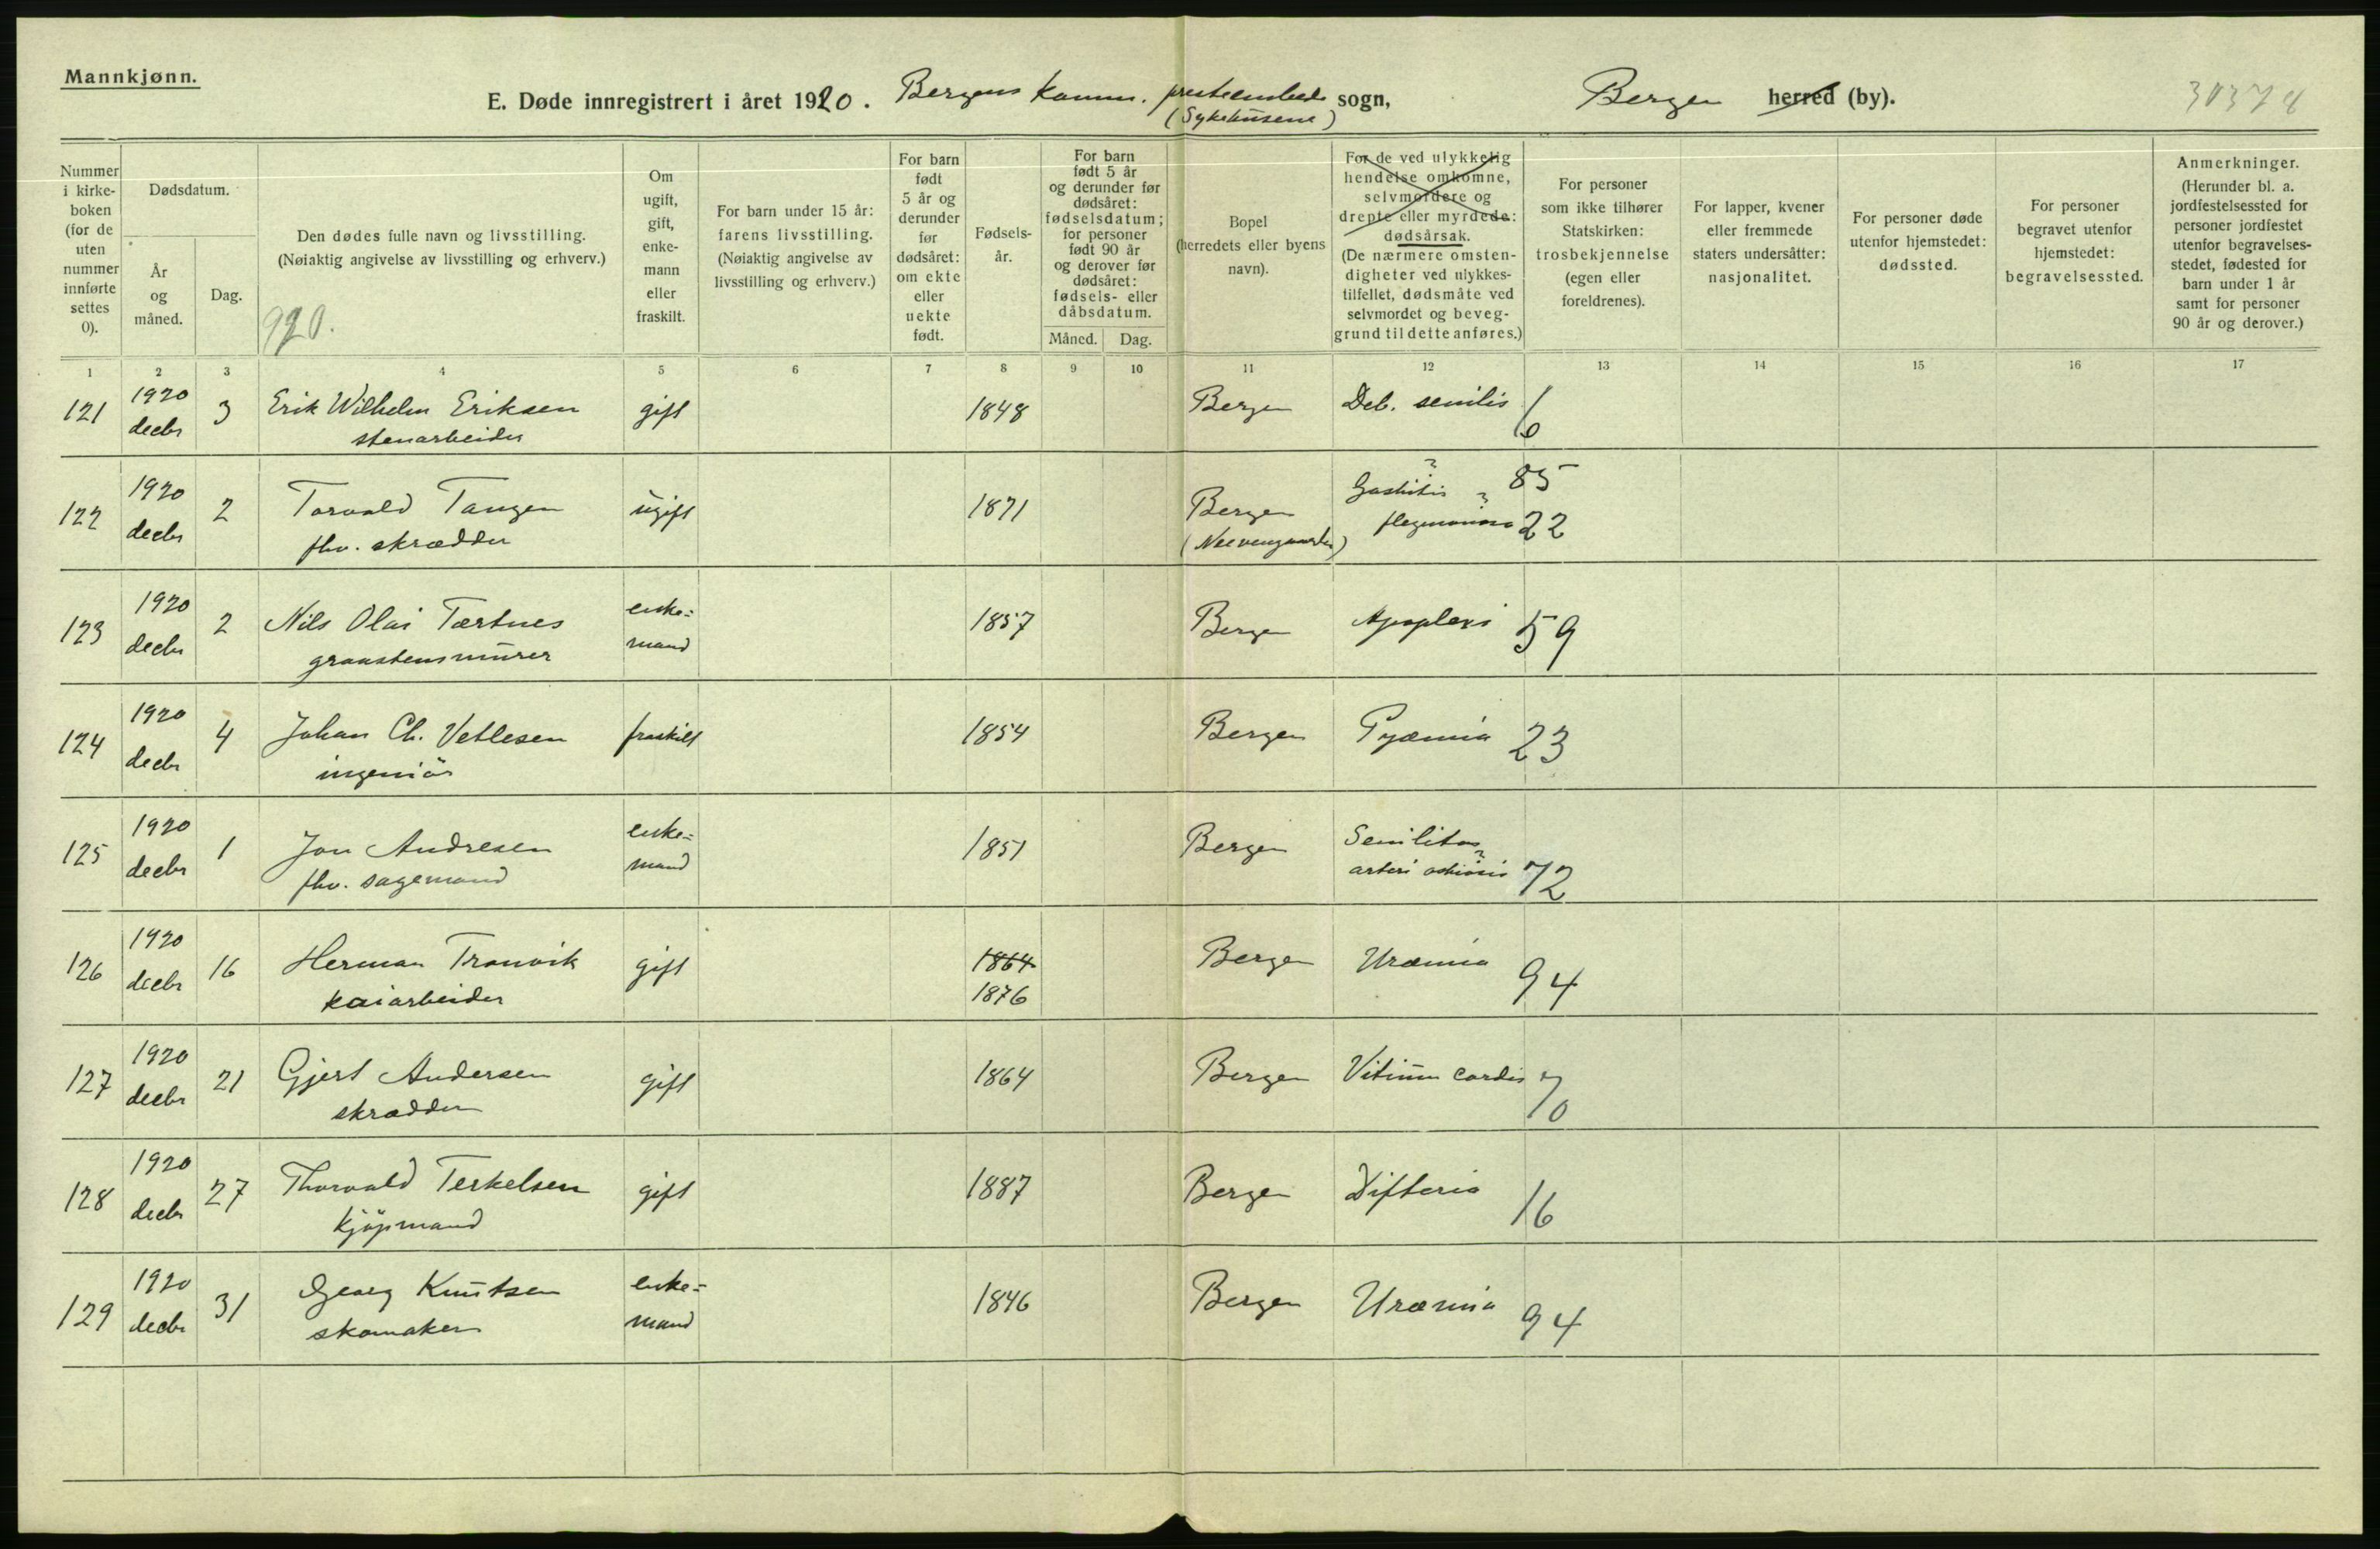 Mannkjønn.
E. Døde innregistrert i året 1920. Bergens komm. presteembede sogn, Bergen herred (by). 30374
(Sykehusene)
Nummer i kirke- boken (for de uten nummer innførte settes 0).
Dødsdatum.
År og måned.
Dag.
Den dødes fulle navn og livsstilling.
(Nøiaktig angivelse av livsstilling og erhverv.)
920.
Om ugift, gift, enke- mann eller fraskilt.
For barn under 15 år:
farens livsstilling.
(Nøiaktig angivelse av
livsstilling og erhverv.)
For barn født 5 år og derunder før dødsåret: om ekte eller uekte født.
Fødsels- år.
For barn født 5 år og derunder før dødsåret: fødselsdatum; for personer født 90 år og derover før dødsåret: fødsels- eller dåbsdatum.
Måned. Dag.
Bopel
(herredets eller byens
navn).
For de ved ulykkelig
hendelse omkomne,
selvmordere og
drepte eller myrdede:
dødsårsak.
(De nærmere omsten-
digheter ved ulykkes-
tilfellet, dødsmåte ved
selvmordet og beveg-
grund til dette anføres.)
For personer
som ikke tilhører
Statskirken:
trosbekjennelse
(egen eller
foreldrenes).
For lapper, kvener
eller fremmede
staters undersåtter:
nasjonalitet.
For personer døde
utenfor hjemstedet:
dødssted.
For personer
begravet utenfor
hjemstedet:
begravelsessted.
Anmerkninger.
(Herunder bl. a.
jordfestelsessted for
personer jordfestet
utenfor begravelses-
stedet, fødested for
barn under 1 år
samt for personer
90 år og derover.)
1 2 3 4 5 6 7 8 9 10 11 12 13 14 15 16 17
121 1920 decbr 3 Erik Wilhelm Eriksen gift 1848 Bergen Deb. senilis 6
stenarbeider
122 1920 decbr 2 Torvald Tangen ugift 1871 Bergen Gastritis 85
fhv. skrædder (Neevengaarden) flegmonosa 22
123 1920 decbr 2 Nils Olai Tærtnes enke- mand 1857 Bergen Apoplexi 59
graastensmurer
124 1920 decbr 4 Johan Ch. Vetlesen fraskilt 1854 Bergen Pyæmia 23
ingeniör
125 1920 decbr 1 Jon Andresen enke- mand 1851 Bergen Senilitas 72
fhv. sagemand
126 1920 decbr 16 Herman Tranvik gift 1864 1876 Bergen Uræmia 94
kaiarbeider
127 1920 decbr 21 Gjert Andersen gift 1864 Bergen Vitium cordis 70
skrædder
128 1920 decbr 27 Thorvald Terkelsen gift 1887 Bergen Difteria 16
kjöpmand
129 1920 decbr 31 Georg Knutsen enke- mand 1846 Bergen Uræmia 94
skomaker